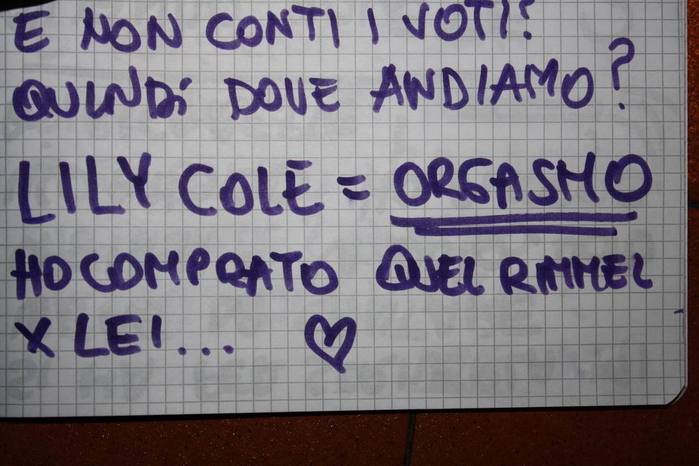 E NON CONTI I VOTI?
QUINDi DOVE ANDIAMO?
LILY COLE = ORGASMO
HO COMPRATO QUEL RIMMEL
X LEI... ♡